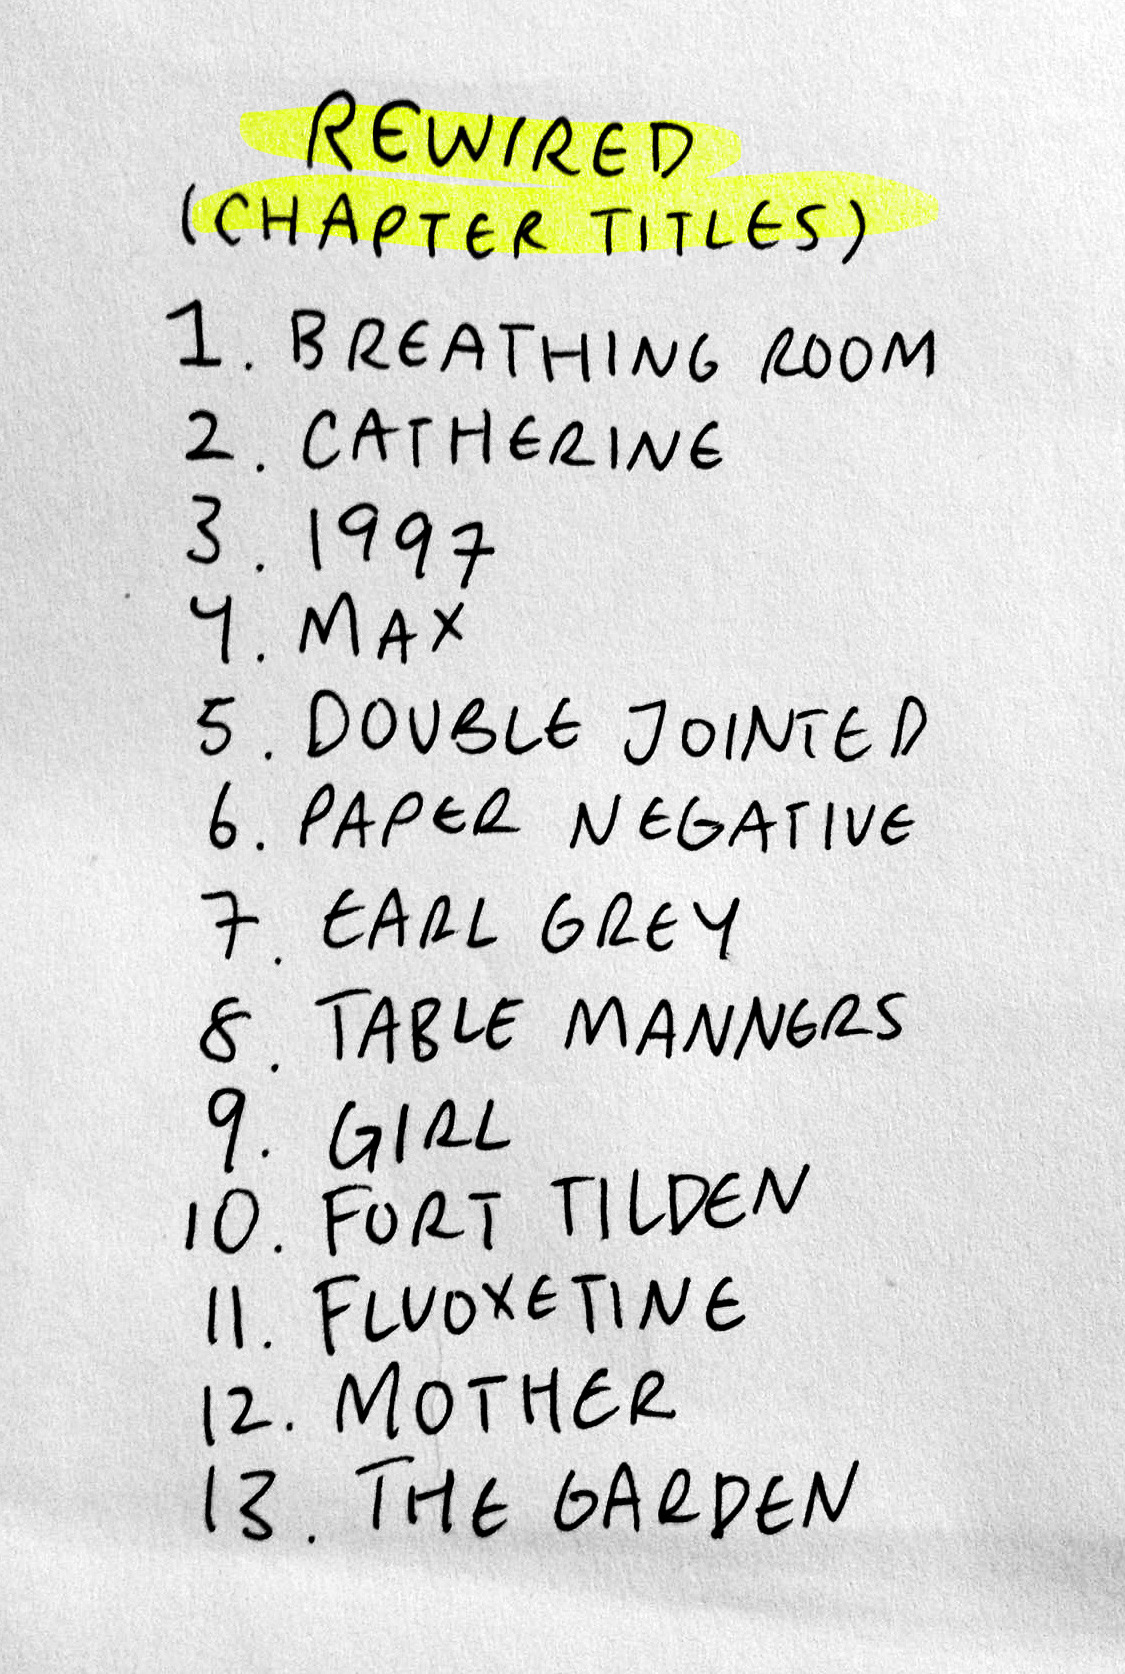 REWIRED
(CHAPTER TITLES)
1. BREATHING ROOM
2. CATHERINE
3. 1997
4. MAX
5. DOUBLE JOINTED
6. PAPER NEGATIVE
7. EARL GREY
8. TABLE MANNERS
9. GIRL
10. FORT TILDEN
11. FLUOXETINE
12. MOTHER
13. THE GARDEN